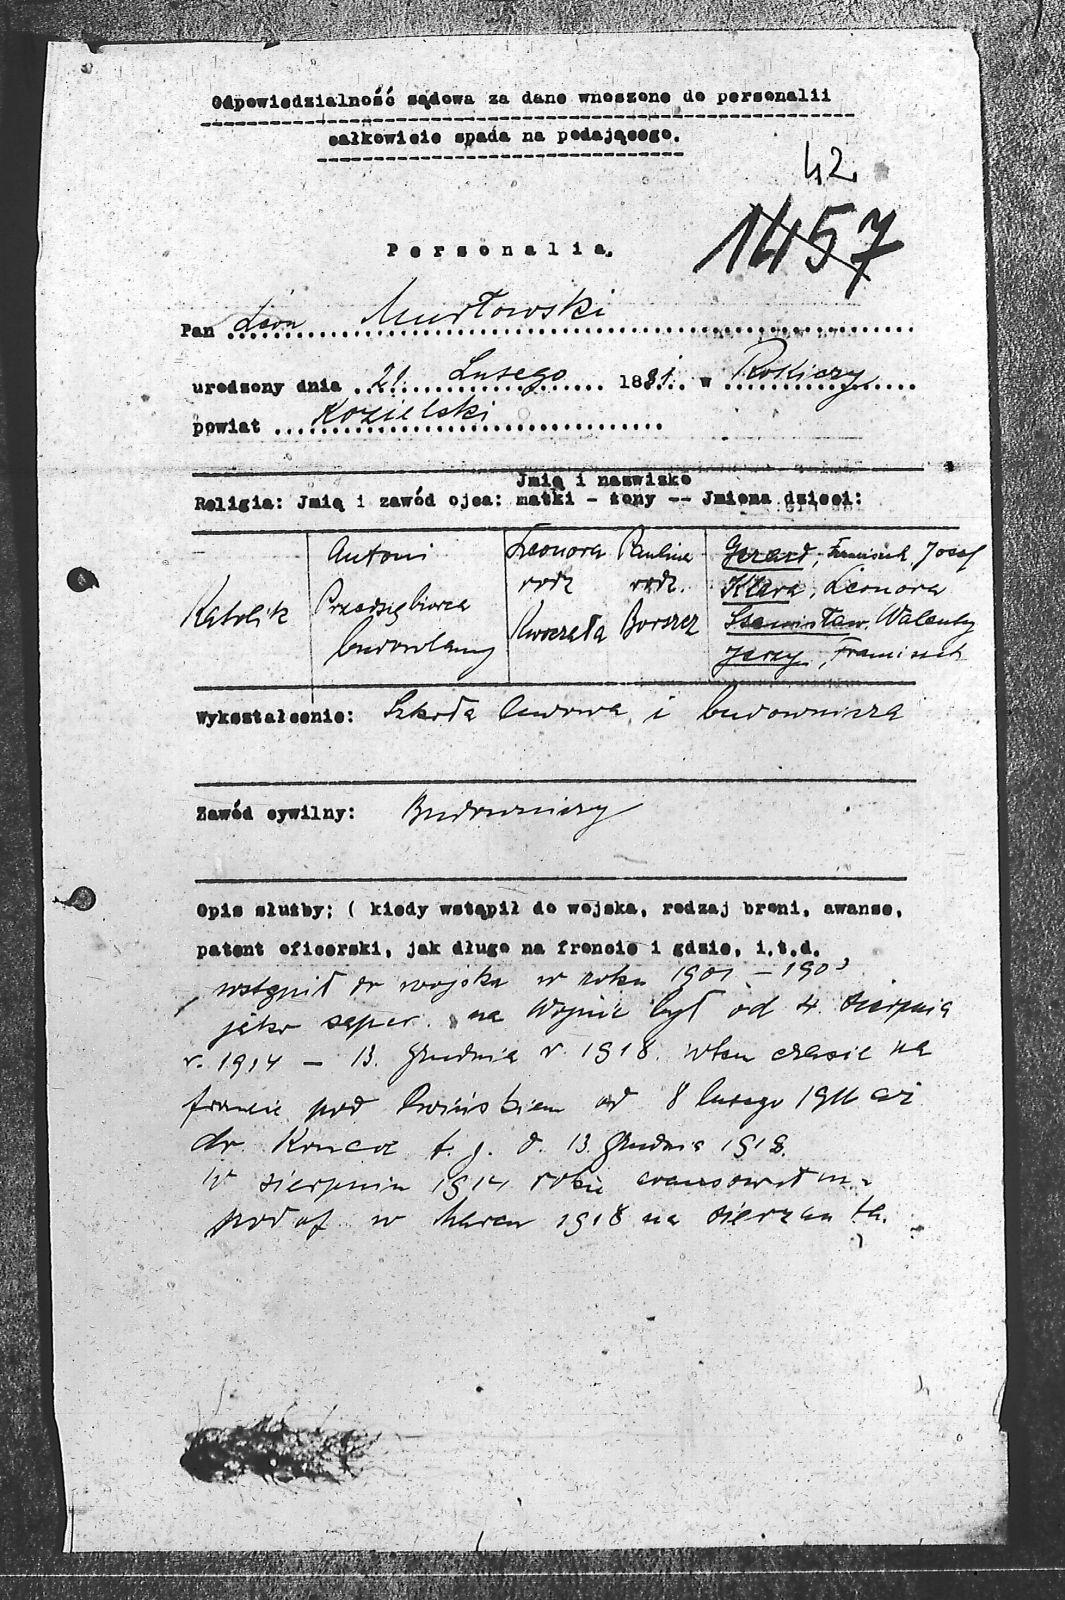 Odpowiedzialność sądowa za dane wnoszone do personalii
całkowicie spada na podającego.
42
1457
Personalia.
Pan Leon Murłowski
urodzony dnia 21. Lutego 1881. w Rokiczy
powiat Kozielski
Jmię i nazwisko
Religia: Jmię i zawód ojca: matki - żony -- Jmiona dzieci:
Antoni Leonora Paulina Gerard, Franciszek, Josef
rodz rodz. Klara, Leonora
Katolik Przedsiębiorca Kwoczała Borszcz Stanisław, Walenty
budowlany Jerzy, Franciszek
Wykształcenie: Szkoła ludowa i budownicza
Zawód cywilny: Budowniczy
Opis służby; ( kiedy wstąpił do wojska, rodzaj broni, awanse,
patent oficerski, jak długo na froncie i gdzie, i.t.d.
wstąpił do wojska w roku 1901 - 1903
jako saper. na Wojnie był od 4. sierpnia
r. 1914 - 13. grudnia r. 1918. w tem czasie na
froncie pod od 8 lutego
do Konca t. j. d. 13. grudnia 1918.
W sierpniu 1914 roku
podof w Marcu 1918 na sierżanta.